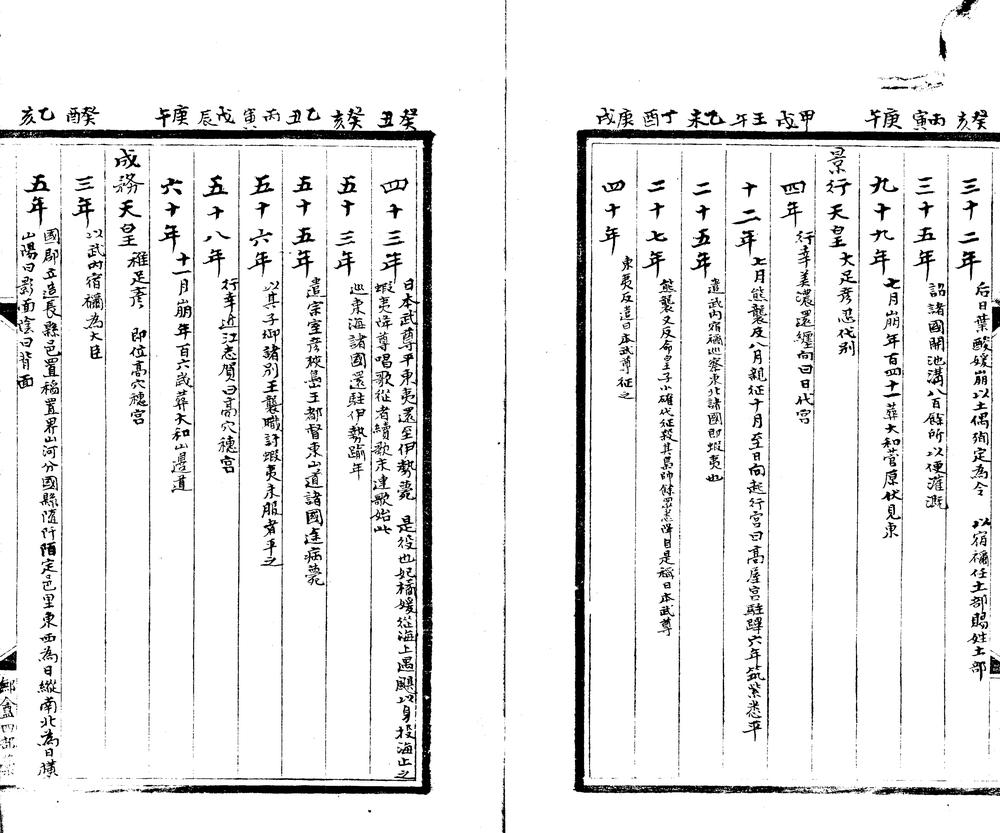 癸亥
三十二年 后日葉酸媛崩以土偶殉定為令 以宿禰任土部賜姓土部
丙寅
三十五年 詔諸國開池溝八百餘所以便灌溉
庚午
九十九年 七月崩年百四十一葬大和菅原伏見東
景行天皇 大足彥忍代别
甲戌
四年 行幸美濃還纏向曰日代宮
壬午
十二年 七月熊襲反八月親征十月至日向起行宮曰高屋宮駐蹕六年筑紫悉平
乙未
二十五年 遣武內宿禰巡察東北諸國即蝦夷也
丁酉
二十七年 熊襲又反命皇子小碓代征殺其梟帥餘眾悉降自是稱日本武尊
庚戌
四十年 東夷反遣日本武尊征之
癸丑
四十三年 日本武尊平東夷還至伊勢薨 是役也妃橘媛從海上遇颶以身投海止之
蝦夷降尊唱歌從者續歌末連歌始此
癸亥
五十三年 巡東海諸國還駐伊勢踰年
乙丑
五十五年 遣宗室彥狹島王都督東山道諸國途病薨
丙寅
五十六年 以其子御諸别王襲職討蝦夷未服者平之
戊辰
五十八年 行幸近江志賀曰高穴穗宮
庚午
六十年 十一月崩年百六歲葬大和山邊道
成務天皇 稚足彥 即位高穴穗宮
癸酉
三年 以武內宿禰為大臣
乙亥
五年 國郡立造長縣邑置稻置界山河分國縣隨阡陌定邑里東西為日縱南北為日橫
山陽曰影面陰曰背面